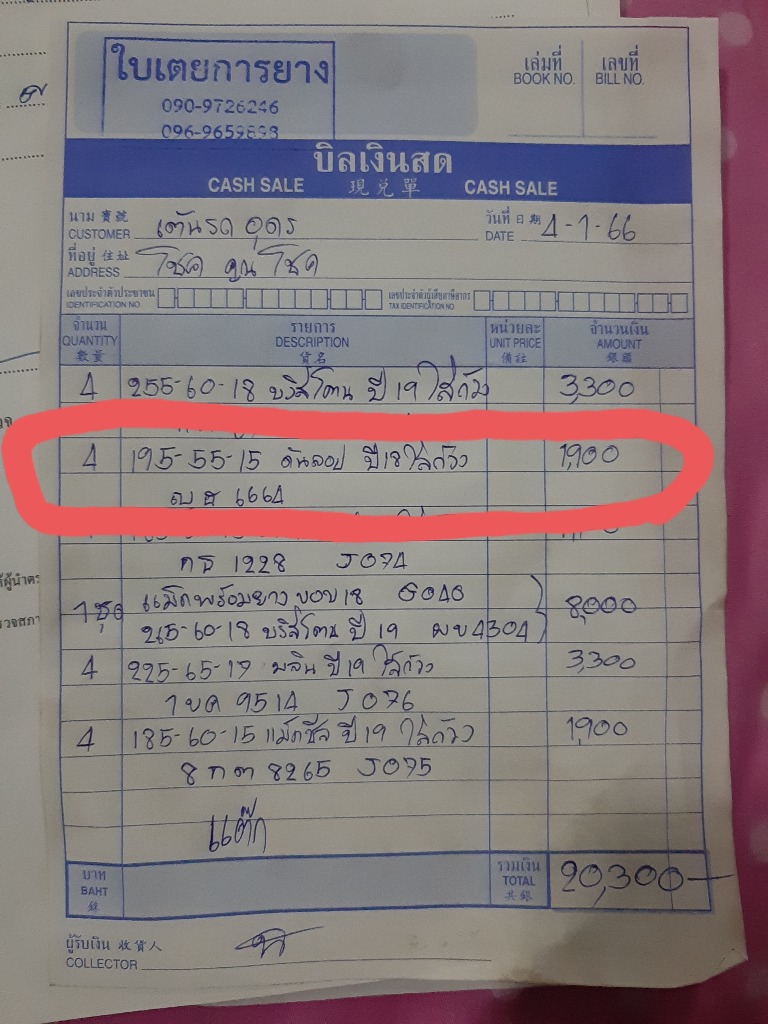 ใบเตยการยาง
090-9726246
096-9659898
เล่มที่
BOOK NO.
เลขที่
BILL NO.
บิลเงินสด
CASH SALE 現兌單 CASH SALE
นาม 寶號
CUSTOMER เต้นรถ อุดร
วันที่ 日期
DATE 4-1-66
ที่อยู่ 住址
ADDRESS โชค คูณ โชค
เลขประจำตัวประชาชน
IDENTIFICATION NO.
เลขประจำตัวผู้เสียภาษีอากร
TAX IDENTIFICATION NO.
จำนวน รายการ หน่วยละ จำนวนเงิน
QUANTITY DESCRIPTION UNIT PRICE AMOUNT
數量 貨名 備註 銀碼
4 255-60-18 บริสโตน ปี 19 ใส่ถ้วง 3,300
4 195-55-15 ดันลอป ปี 18 ใส่ถ้วง 1,900
ญฮ 6664
กธ 1228 J074
1ชุด แม็กพร้อมยาง ขอบ 18 G040 8,000
-60-18 บริสโตน ปี 19 ผข 4304
4 225-65-17 มลิน ปี 19 ใส่ถ้วง 3,300
1ขค 9514 J076
4 185-60-15 แม็กซีส ปี 19 ใส่ถ้วง 1,900
8กต 8265 J075
แต๊ก
บาท
BAHT
รวมเงิน
TOTAL 20,300
共銀
ผู้รับเงิน 收貨人
COLLECTOR